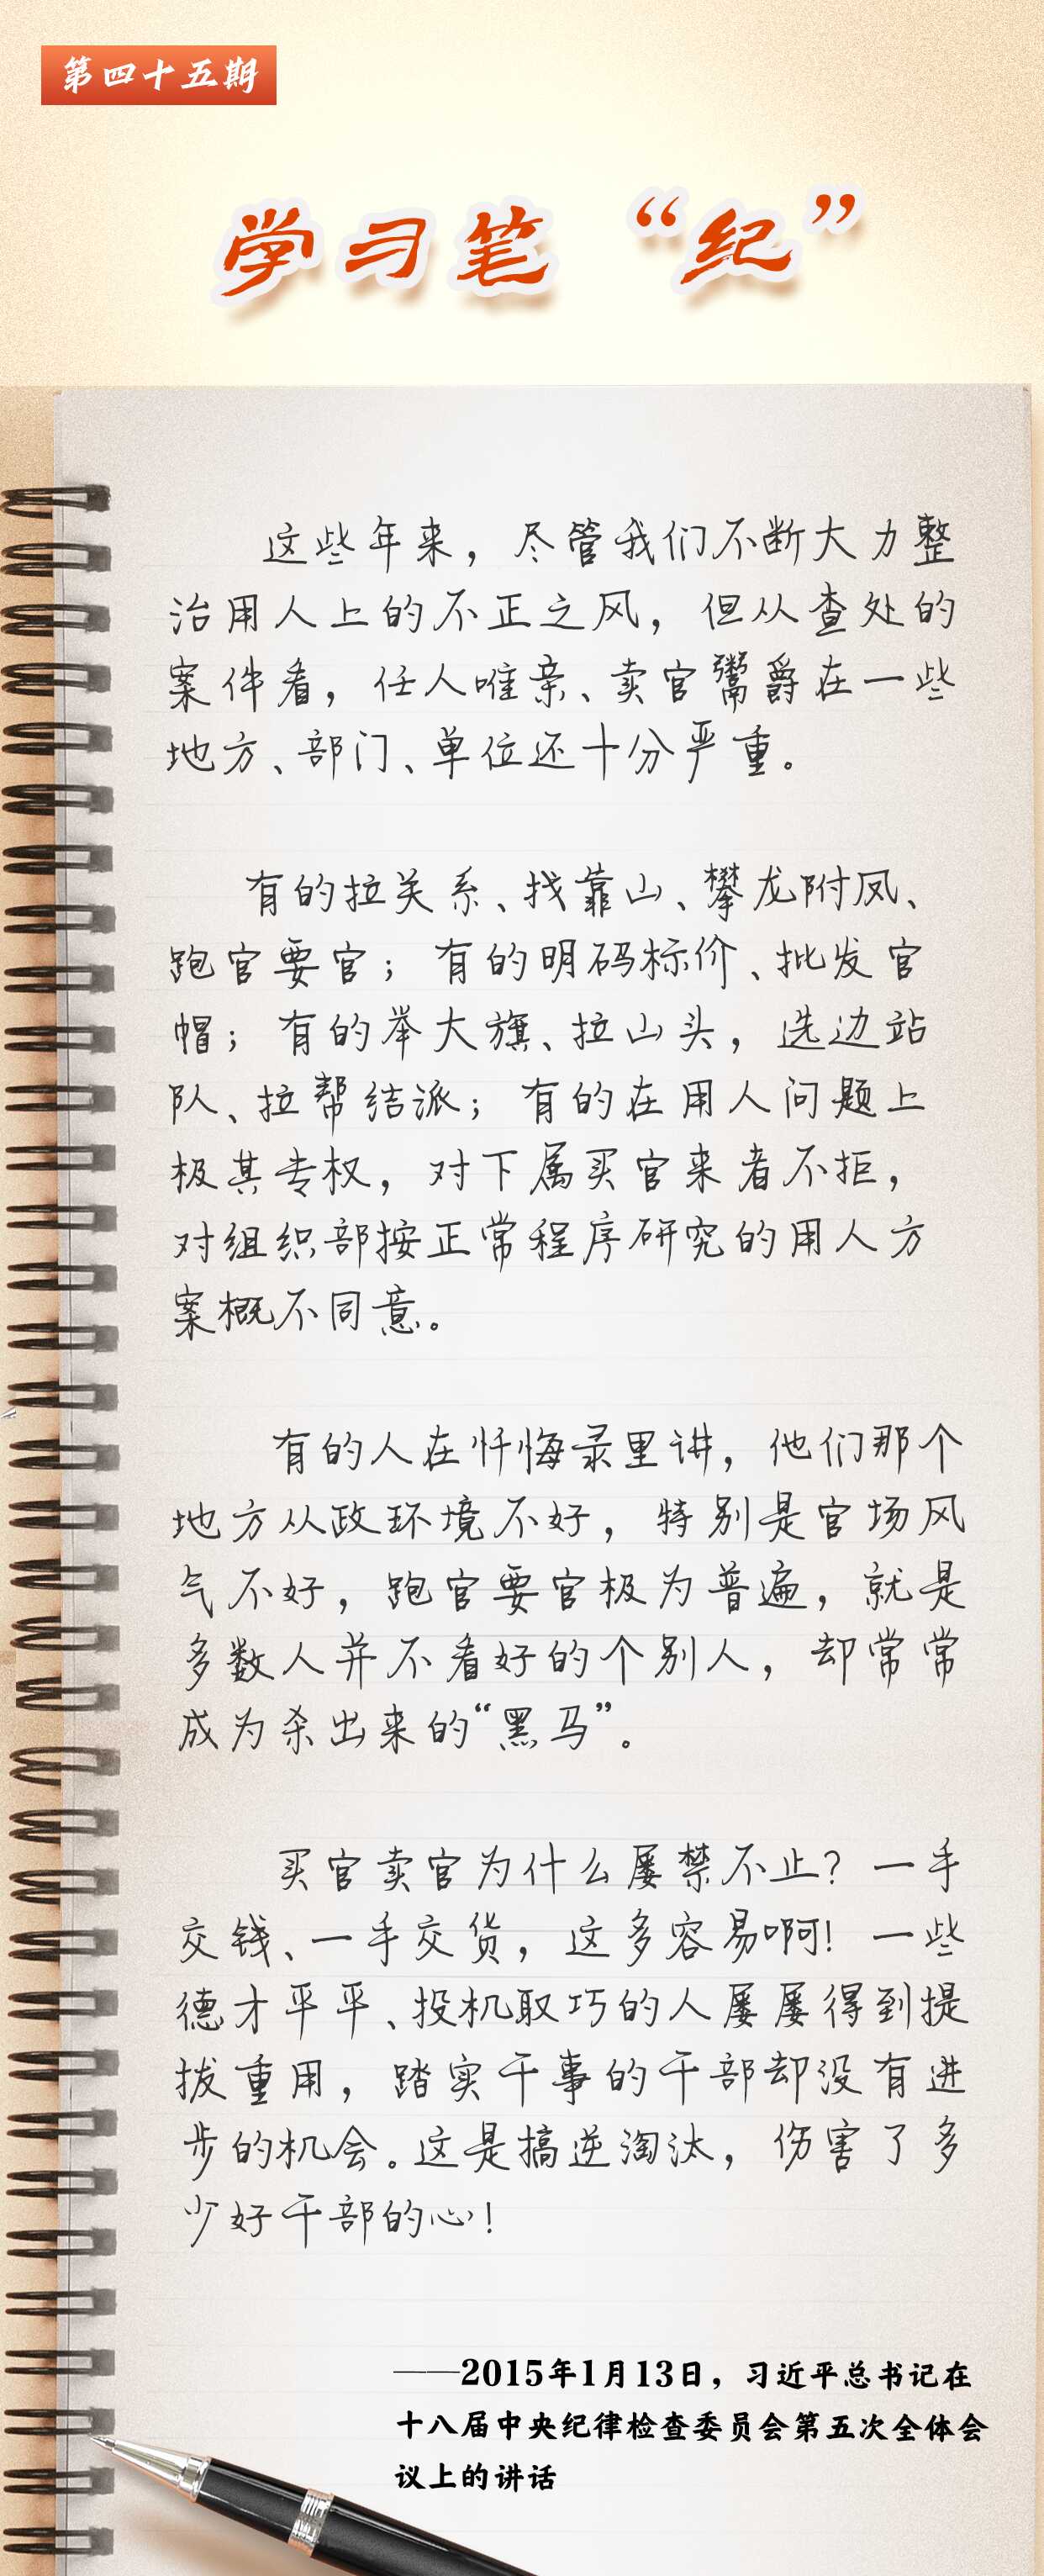 第四十五期
学习笔“纪”
这些年来，尽管我们不断大力整
治用人上的不正之风，但从查处的
案件看，任人唯亲、卖官鬻爵在一些
地方、部门、单位还十分严重。
有的拉关系、找靠山、攀龙附凤、
跑官要官；有的明码标价、批发官
帽；有的举大旗、拉山头，选边站
队、拉帮结派；有的在用人问题上
极其专权，对下属买官来者不拒，
对组织部按正常程序研究的用人方
案概不同意。
有的人在忏悔录里讲，他们那个
地方从政环境不好，特别是官场风
气不好，跑官要官极为普遍，就是
多数人并不看好的个别人，却常常
成为杀出来的“黑马”。
买官卖官为什么屡禁不止？一手
交钱、一手交货，这多容易啊！一些
德才平平、投机取巧的人屡屡得到提
拔重用，踏实干事的干部却没有进
步的机会。这是搞逆淘汰，伤害了多
少好干部的心！
——2015年1月13日，习近平总书记在
十八届中央纪律检查委员会第五次全体会
议上的讲话